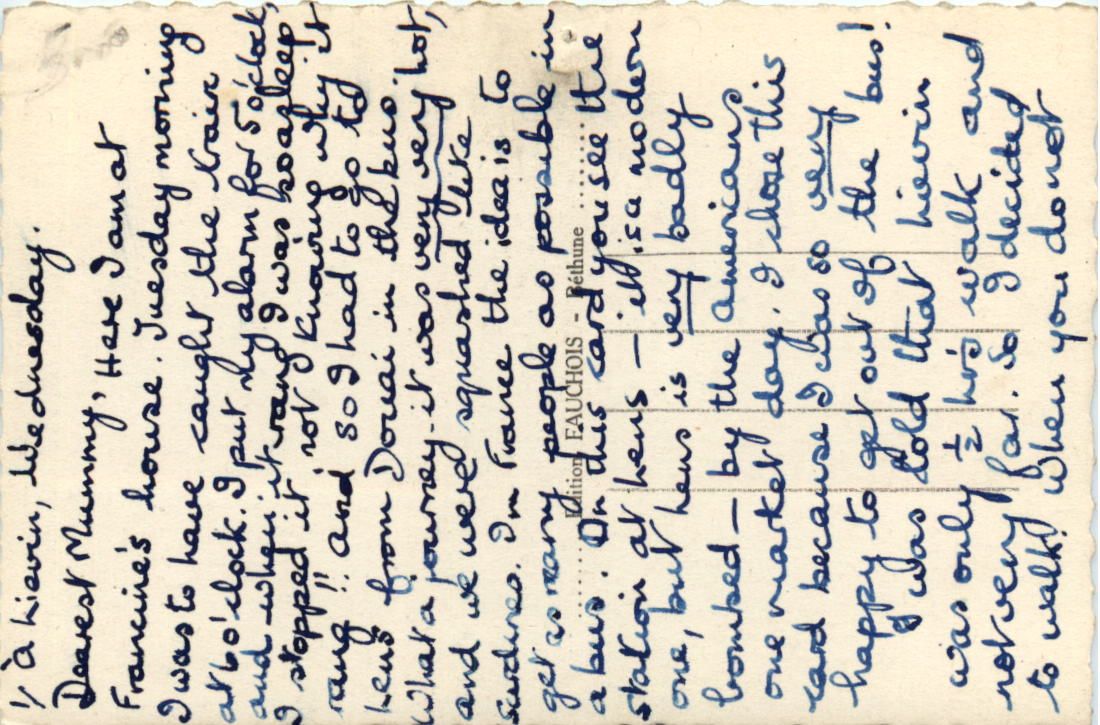 1/ à Lievin, Wednesday.
Dearest Mummy, Here I am at
Francine's house. Tuesday morning
I was to have caught the train
at 6 o'clock. I put my alarm for 5 o'clock,
and when it rang I was so asleep
I stopped it not knowing why it
rang!! and so I had to go to
Lens from Douai in the bus.
What a journey - it was very very hot,
and we were squashed like
sardines. In France the idea is to
get as many people as possible in
a bus. On this card you see the
station at Lens — it is a modern
one, but Lens is very badly
bombed — by the americans
one market day. I chose this
card because I was so very
happy to get out of the bus!
I was told that Lievin
was only ½ hr's walk and
not very far. So I decided
to walk! When you do not
Edition FAUCHOIS - Béthune